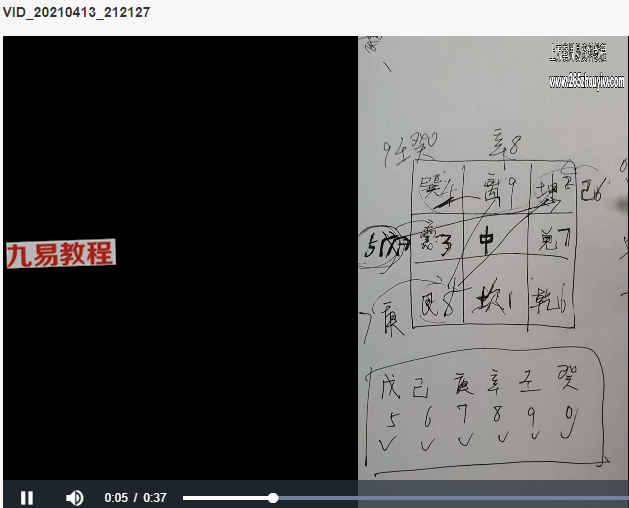 VID_20210413_212127
九易教程
9壬癸0 辛8
巽4 离9 坤2 己6
5戊 震3 中 兑7
7庚 艮8 坎1 乾6
戊 己 庚 辛 壬 癸
5 6 7 8 9 0
0:05 / 0:37